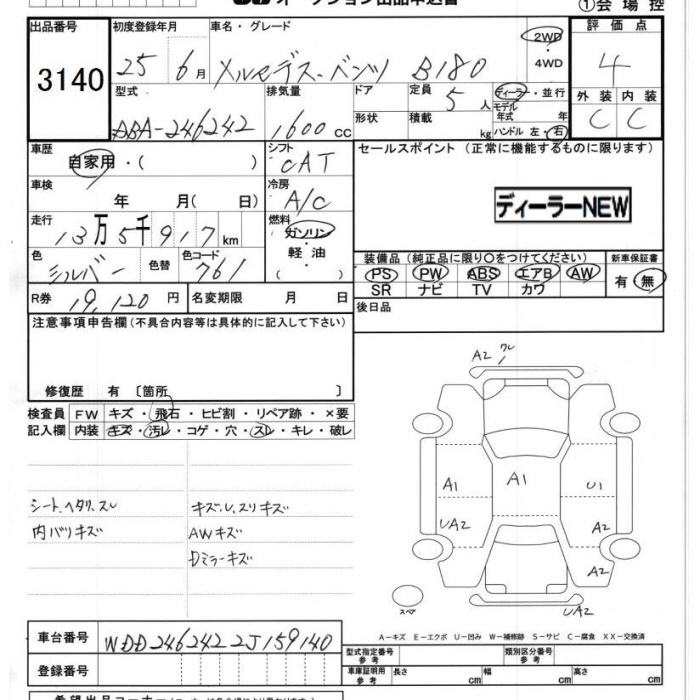 オークション出品申込書 ①会場控
出品番号 初度登録年月 車名・グレード 2WD 評価点
3140 25 6月 メルセデス-ベンツ B180 ・4WD 4
型式 排気量 ドア 定員 5人 ディーラー・並行 外装 内装
DBA-246242 1600cc 形状 積載 kg モデル年式 年 ハンドル 左・右 C C
車歴 自家用・( ) シフト CAT セールスポイント (正常に機能するものに限ります)
車検 年 月( 日) 冷房 A/C ディーラーNEW
走行 13万5千917km 燃料 ガソリン・軽油
色 シルバー 色替 色コード 761 装備品 (純正品に限り○をつけてください) 新車保証書
PS PW ABS エアB AW 有・無
SR ナビ TV カワ
R券 19,120円 名変期限 月 日 後日品
注意事項申告欄 (不具合内容等は具体的に記入して下さい)
修復歴 有 〔箇所 〕
検査員 FW キズ・飛石・ヒビ割・リペア跡・×要
記入欄 内装 キズ・汚レ・コゲ・穴・スレ・キレ・破レ
シート.ヘタリ.スレ キズ,U,スリキズ
内バリキズ AWキズ
Dミラーキズ
A2
A1 A1 U1
UA2 A2
A2
スペア UA2
A-キズ E-エクボ U-凹み W-補修跡 S-サビ C-腐食 XX-交換済
車台番号 WDD2462422J159140
型式指定番号 参考 類別区分番号 参考
登録番号 車庫証明用 参考 長さ cm 幅 cm 高さ cm
希望出品コーナー